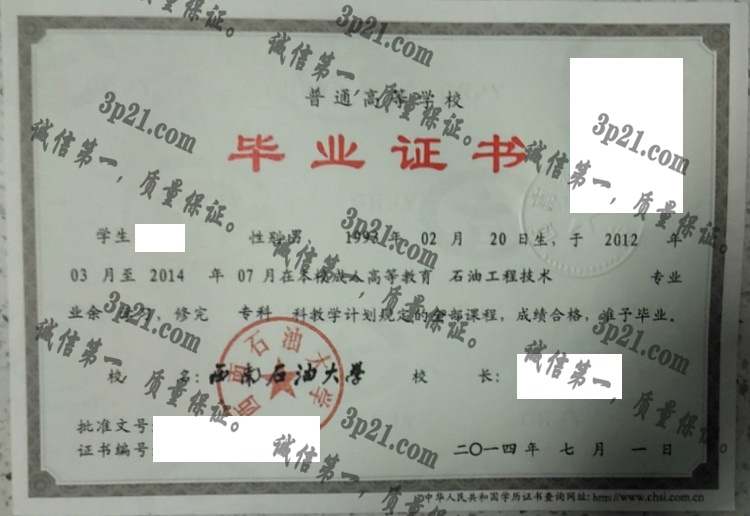 普通高等学校
毕业证书
学生 性别男，1993年 02月 20日生，于 2012 年
03 月至 2014 年 07月在本校成人高等教育 石油工程技术 专业
业余 学习，修完 专科 科教学计划规定的全部课程，成绩合格，准予毕业。
校 名：西南石油大学 校 长：
西南石油大学
批准文号：
证书编号
二〇一四年 七月 一日
中华人民共和国学历证书查询网址：http://www.chsi.com.cn
3p21.com
诚信第一，质量保证。
3p21.com
诚信第一，质量保证。
3p21.com
诚信第一，质量保证。
3p21.com
诚信第一，质量保证。
3p21.com
诚信第一，质量保证。
3p21.com
诚信第一，质量保证。
3p21.com
诚信第一，质量保证。
3p21.com
诚信第一，质量保证。
3p21.com
诚信第一，质量保证。